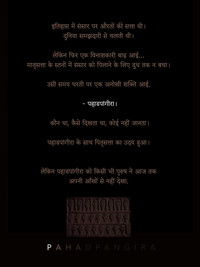 इतिहास में संसार पर औरतों की सत्ता थी।
दुनिया समझदारी से चलती थी।
लेकिन फिर एक विनाशकारी बाढ़ आई...
मातृसत्ता के स्तनों में संसार को पिलाने के लिए दूध तक न बचा।
उसी समय धरती पर एक अनोखी शक्ति आई,
- पहाड़पांगीरा।
कौन था, कैसे दिखता था, कोई नहीं जानता।
पहाड़पांगीरा के साथ पितृसत्ता का उदय हुआ।
लेकिन पहाड़पांगीरा को किसी भी पुरुष ने आज तक
अपनी आँखों से नहीं देखा,
PAHADPANGIRA